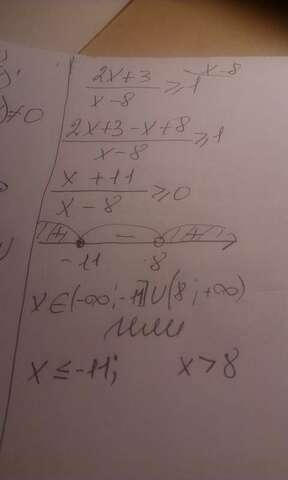 (2x+3)/(x-8) ≥ 1 x-8
(2x+3-x+8)/(x-8) ≥ 1
(x+11)/(x-8) ≥ 0
+ - +
-11 8
x∈(-∞;-11]∪(8;+∞)
или
x≤-11; x>8
≠0